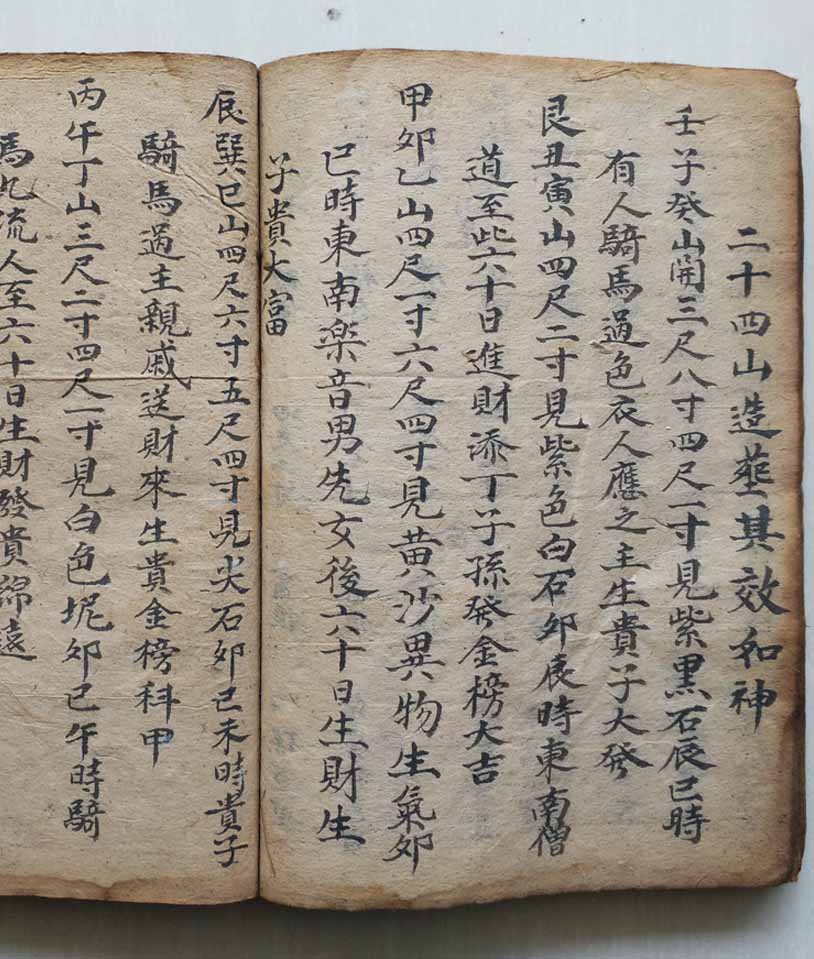 二十四山造葬其效如神
壬子癸山開三尺八寸四尺一寸見紫黒石辰巳時
有人騎馬過色衣人應之主生貴子大發
艮丑寅山四尺二寸見紫色白石卯辰時東南僧
道至此六十日進財添丁子孫發金榜大吉
甲卯乙山四尺一寸六尺四寸見黄沙異物生氣卯
巳時東南楽音男先女後六十日生財生
子貴大富
辰巽巳山四尺六寸五尺四寸見尖石卯巳未時貴子
騎馬過主親戚送財來生貴金榜科甲
丙午丁山三尺二寸四尺一寸見白色坭卯巳午時騎
馬九流人至六十日生財發貴綿遠